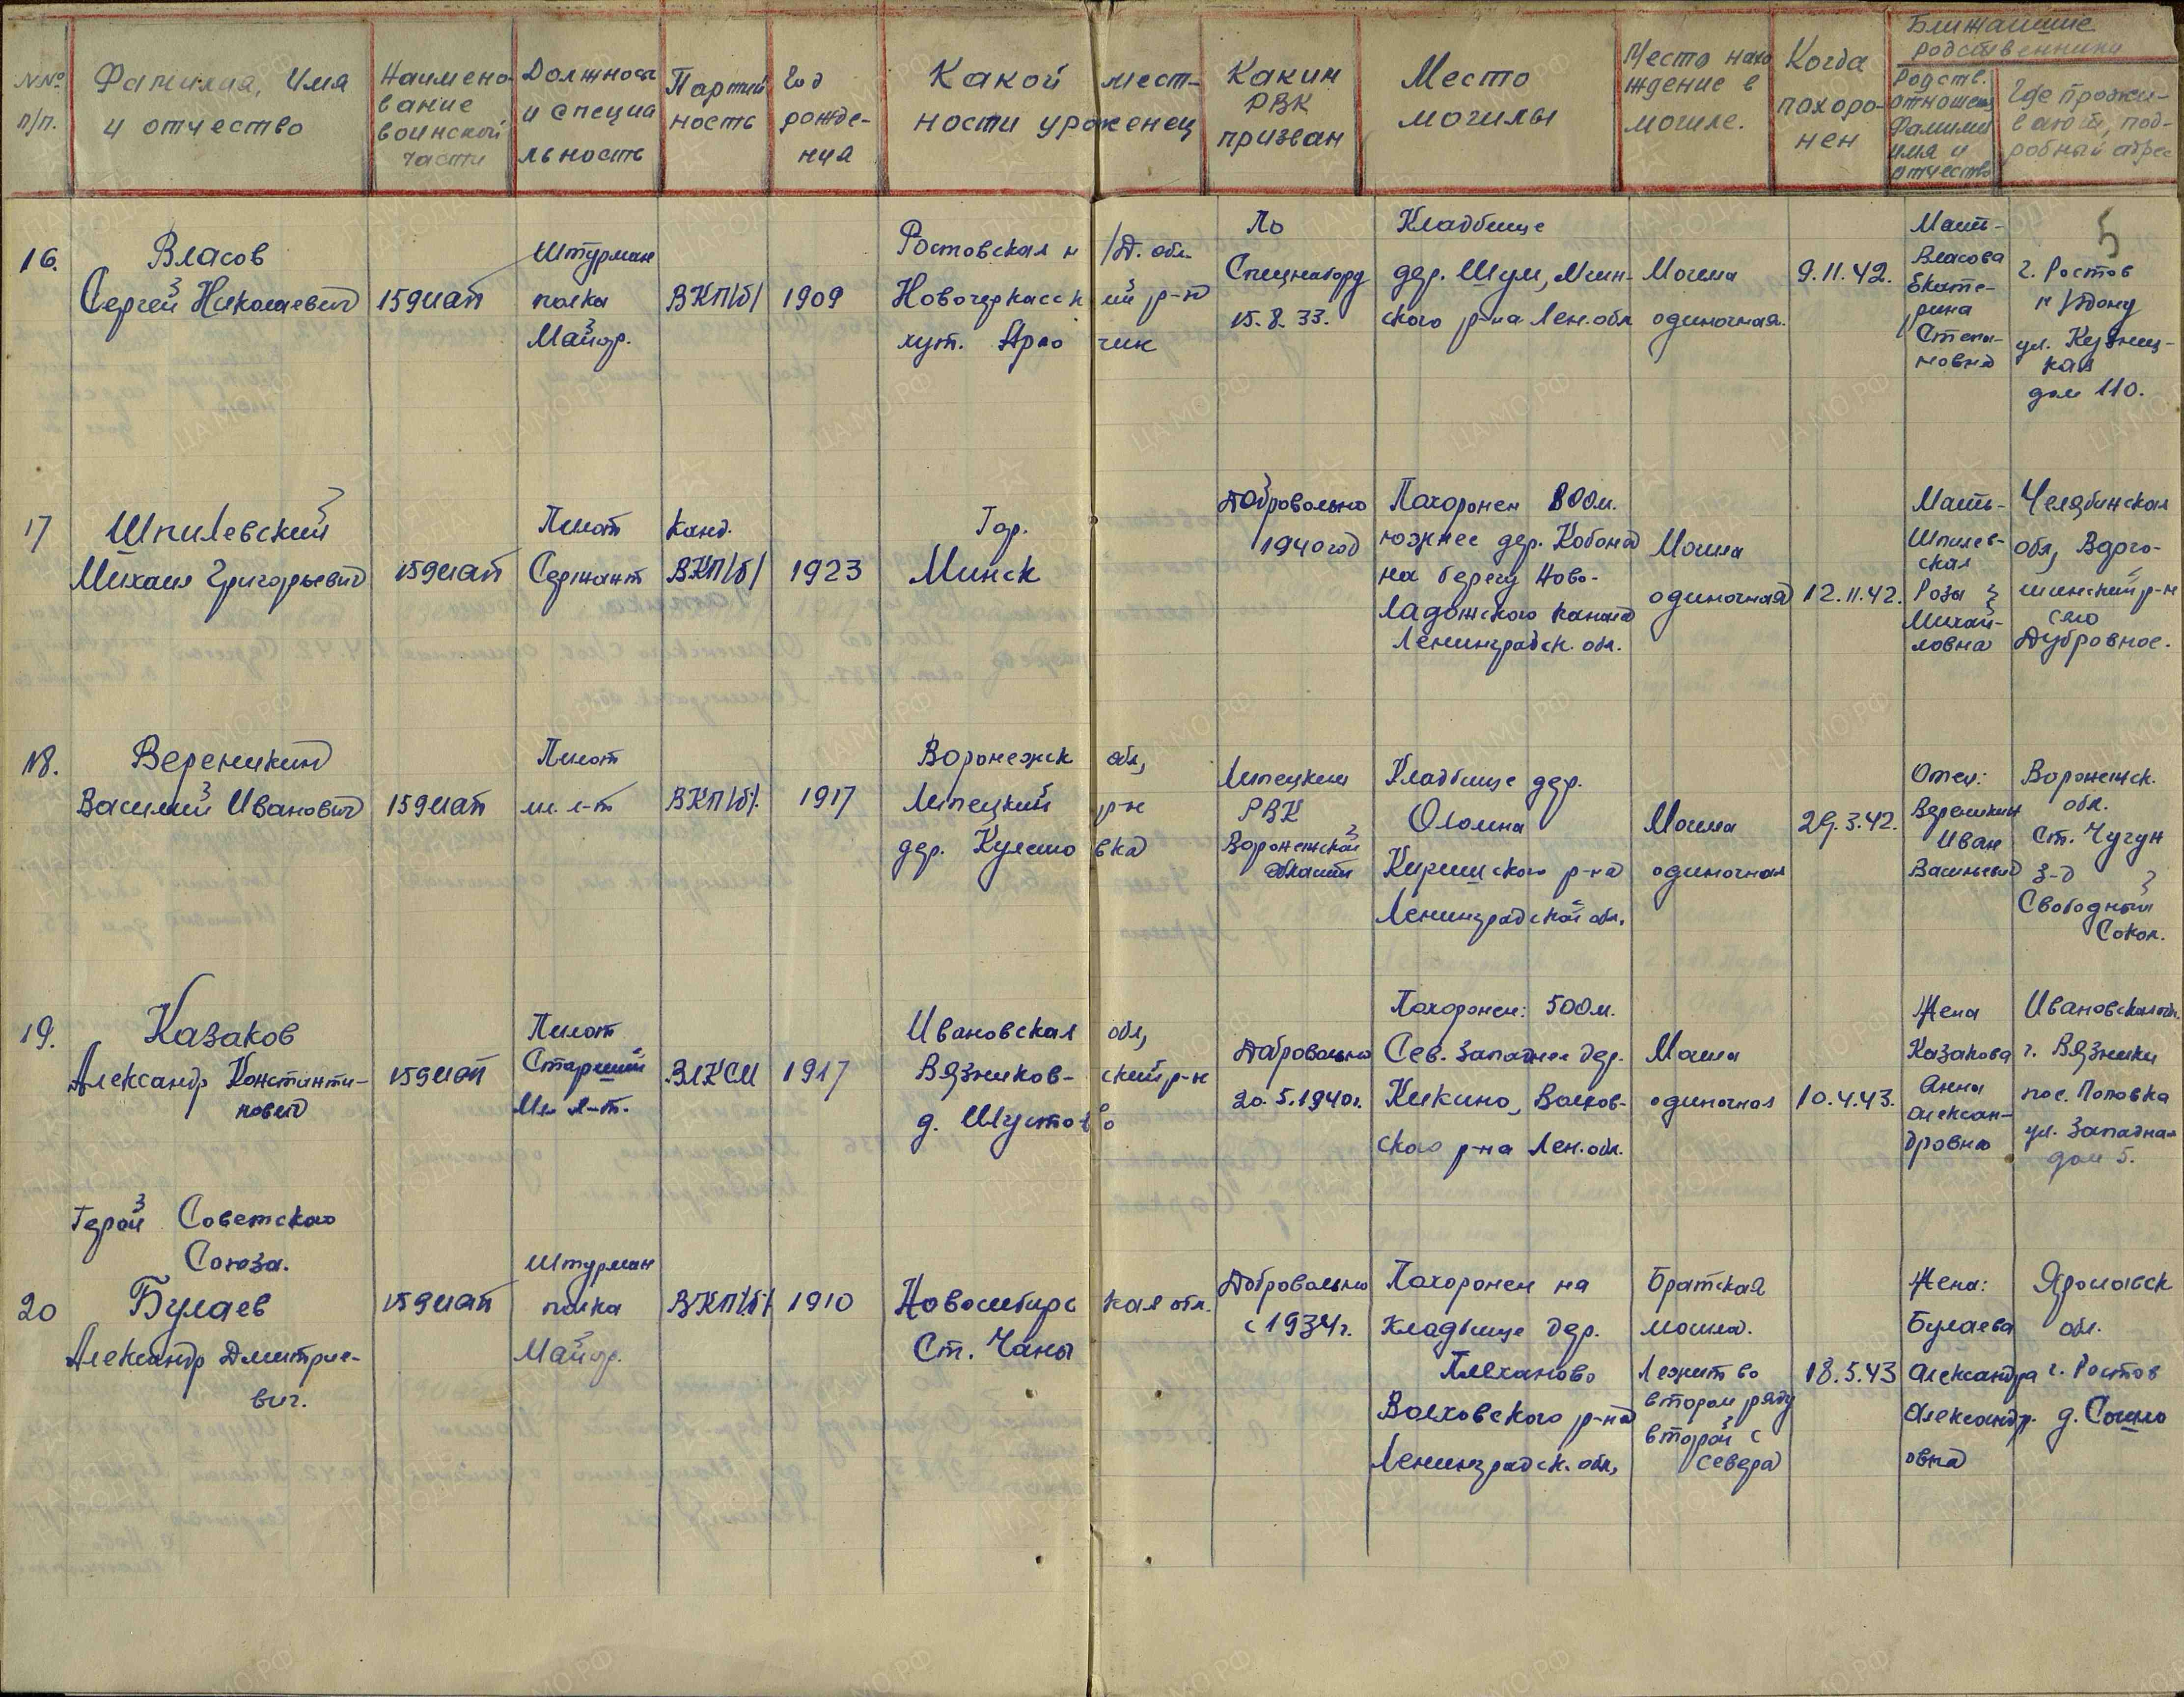 NNº п/п.
Фамилия, Имя и отчество
Наимено-
вание
воинской
части
Должность
и специа
льность
Партий
ность
Год
рожде-
ния
Какой мест-
ности уроженец
Каким
РВК
призван
Место
могилы
Место нахо
ждение в
могиле.
Когда
похоро-
нен
Ближайшие
родственники
Родств.
отношен
Фамилия
имя и
отчество
Где прожи-
вают, под-
робный адрес
5
16.
Власов
Сергей Николаевич
159иап
Штурман
полка
Майор.
ВКП/б/
1909
Ростовская н /Д. обл.
Новочеркасский р-н
хут. Арпачик
По
Спецнабору
15.8.33.
Кладбище
дер. Шум, Мгин-
ского р-на Лен.обл
Могила
одиночная.
9.11.42.
Мать-
Власова
Екате-
рина
Степа-
новна
г. Ростов
н/Дону
ул. Кузнец-
кая
дом 110.
17
Шпилевский
Михаил Григорьевич
159иап
Пилот
Сержант
Канд.
ВКП/б/
1923
Гор.
Минск
Добровольно
1940год
Похоронен 800м.
южнее дер. Кобона
на берегу Ново-
Ладожского канала
Ленинградск. обл.
Могила
одиночная
12.11.42.
Мать-
Шпилев-
ская
Роза
Михай-
ловна
Челябинская
обл,
шинский р-н
село
Дубровное.
18.
Вереникин
Василий Иванович
159иап
Пилот
мл. л-т
ВКП/б/.
1917
Воронежск обл,
Липецкий р-н
дер. Кулешовка
Липецким
РВК
Воронежской
области
Кладбище дер.
Оломна
Киришского р-на
Ленинградской обл.
Могила
одиночная
29.3.42.
Отец:
Вереникин
Иван
Васильевич
Воронежск.
обл.
Ст. Чугун
З-д
Свободный
Сокол.
19.
Казаков
Александр Константи-
нович
159иап
Пилот
Старший
Мл л-т.
ВЛКСМ
1917
Ивановская обл,
Вязников-ский р-н
д. Шустово
Добровольно
20.5.1940г.
Похоронен: 500м.
Сев. Западнее дер.
Кикино, Волхов-
ского р-на Лен.обл.
Могила
одиночная
10.4.43.
Жена
Казакова
Анна
Алексан-
дровна
Ивановская обл.
г. Вязники
пос. Поповка
ул. Западная
дом 5.
Герой Советского
Союза.
20
Булаев
Александр Дмитрие-
вич.
159иап
Штурман
полка
Майор.
ВКП/б/
1910
Новосибирская обл.
Ст. Чаны
Добровольно
с 1934г.
Похоронен на
Кладбище дер.
Плеханово
Волховского р-на
Ленинградск. обл,
Братская
могила.
Лежит во
втором ряду
второй с
севера
18.5.43
Жена:
Булаева
Александра
Александр.
овна
Ярославск
обл.
г. Ростов